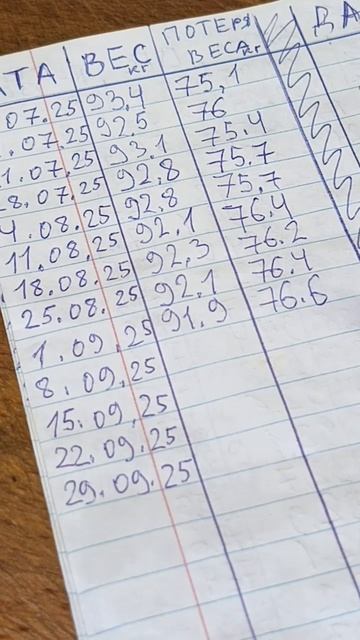 АТА ВЕС кг ПОТЕРЯ ВЕСА кг ДА
07.25 93,4 75,1
.07.25 92.5 76
1.07.25 93.1 75.4
8.07.25 92,8 75.7
4.08.25 92,8 75,7
11.08.25 92,1 76.4
18.08.25 92,3 76.2
25.08.25 92.1 76.4
1.09.25 91.9 76.6
8.09.25
15.09.25
22.09.25
29.09.25